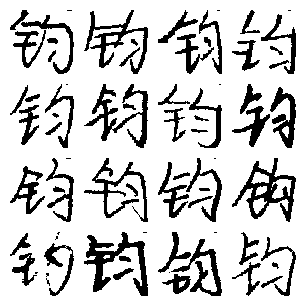 钧钧钧钧
钧钧钧钧
钧钧钧钧
钧钧钧钧